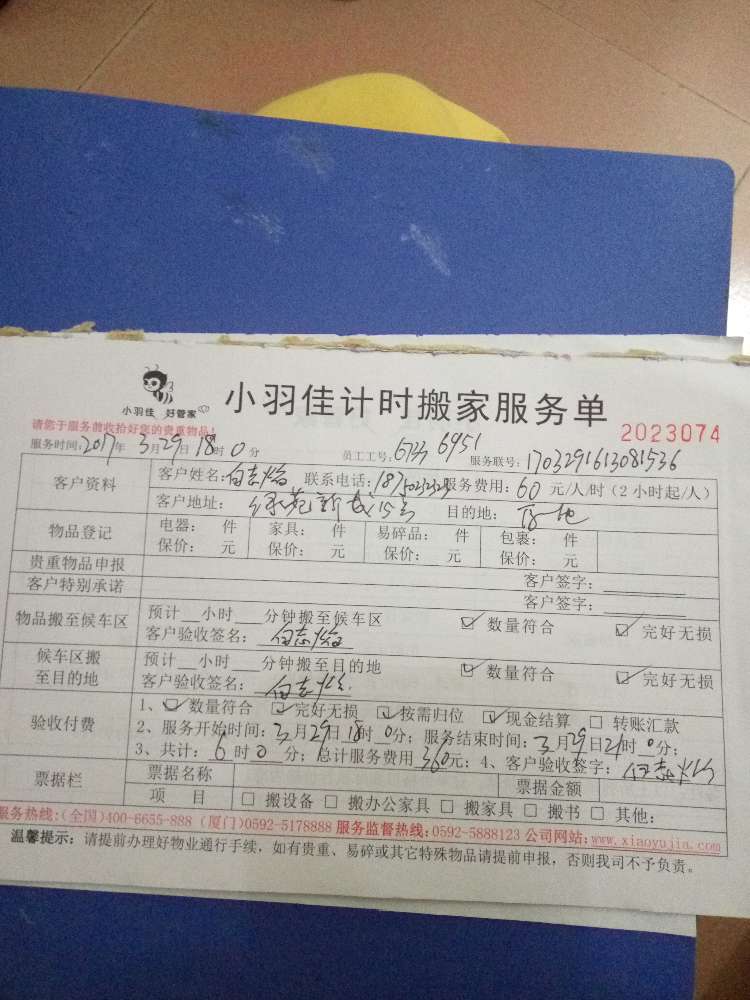 小羽佳 好管家
小羽佳计时搬家服务单
2023074
请您于服务前收拾好您的贵重物品!
服务时间:2017年3月29日18时0分 员工工号:6733 6951 服务联号:1703291613081536
客户资料 客户姓名: 联系电话:187 服务费用:60元/人/时(2小时起/人)
客户地址: 目的地:
物品登记 电器: 件 家具: 件 易碎品: 件 包裹: 件
保价: 元 保价: 元 保价: 元 保价: 元
贵重物品申报 客户签字:
客户特别承诺 客户签字:
物品搬至候车区 预计__小时__分钟搬至候车区 ☑数量符合 ☑完好无损
客户验收签名:
候车区搬至目的地 预计__小时__分钟搬至目的地 ☑数量符合 ☑完好无损
客户验收签名:
验收付费 1、☑数量符合 ☑完好无损 ☑按需归位 ☑现金结算 □转账汇款
2、服务开始时间:3月29日18时0分;服务结束时间:3月29日21时0分;
3、共计:6时0分;总计服务费用360元;4、客户验收签字:
票据栏 票据名称 票据金额
项 目 □搬设备 □搬办公家具 □搬家具 □搬书 □其他:
服务热线:(全国)400-6655-888 (厦门)0592-5178888 服务监督热线:0592-5888123 公司网站:www.xiaoyujia.com
温馨提示:请提前办理好物业通行手续,如有贵重、易碎或其它特殊物品请提前申报,否则我司不予负责。